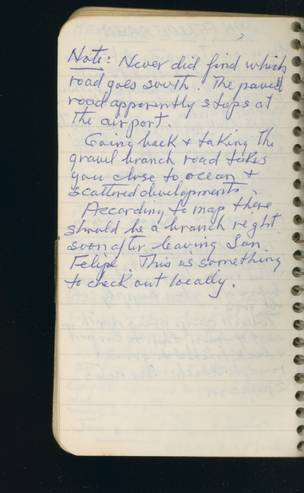 Note: Never did find which
road goes south. The paved
road apparently stops at
the airport.
Going back & taking the
gravel branch road takes
you close to ocean &
scattered developments.
According to map there
should be a branch right
soon after leaving San
Felipe. This is something
to check out locally.